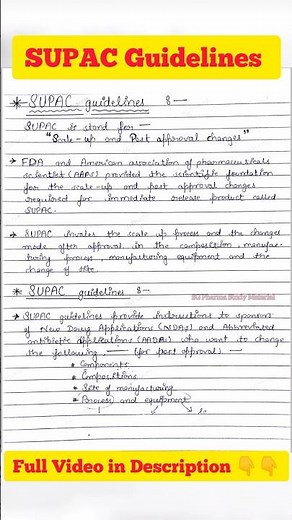 SUPAC Guidelines
* SUPAC guidelines :-
SUPAC is stand for —
"Scale-up and Post approval changes"
→ FDA and American association of pharmaceuticals
scientist (AAPS) provided the scientific foundation
for the scale-up and post approval changes
required for immediate release product called
SUPAC.
→ SUPAC involes the scale up process and the changes
made after approval in the composition, manufac-
turing process, manufacturing equipment and the
change of site.
SU Pharma Study Material
* SUPAC guidelines :-
→ SUPAC guidelines provide instructions to sponsors
of New Drug Applications (NDAs) and Abbreviated
antibiotic applications (AADAs) who want to change
the following — (for post approval) —
* Components
* Compositions
* Site of manufacturing
* Process and equipment
Full Video in Description 👇👇